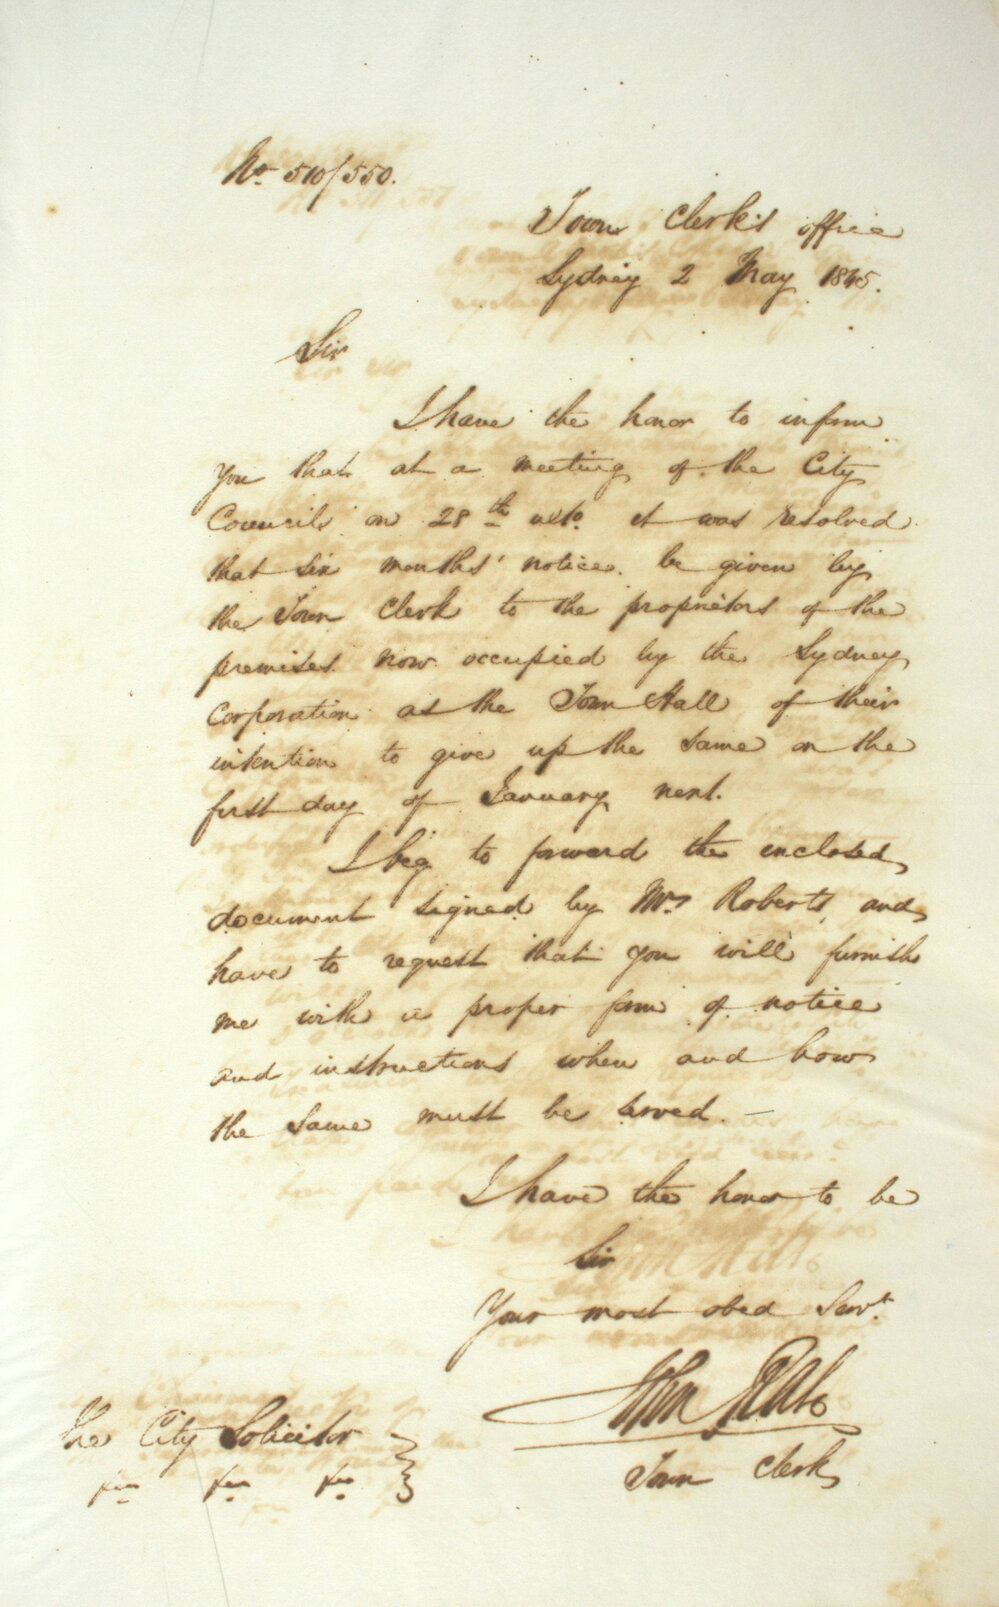 No. 510/550.
Town Clerk's office
Sydney 2 May 1845.
Sir
I have the honor to inform
you that at a meeting of the City
Council on 28th ulto. it was resolved
that six months' notice be given by
the Town Clerk to the proprietors of the
premises now occupied by the Sydney
Corporation as the Town Hall of their
intention to give up the same on the
first day of January next.
I beg to forward the enclosed
document signed by Mrs Roberts, and
have to request that you will furnish
me with a proper form of notice
and instructions when and how
the same must be served. —
I have the honor to be
Sir
Your most obed Servt.
John
Town Clerk
The City Solicitor